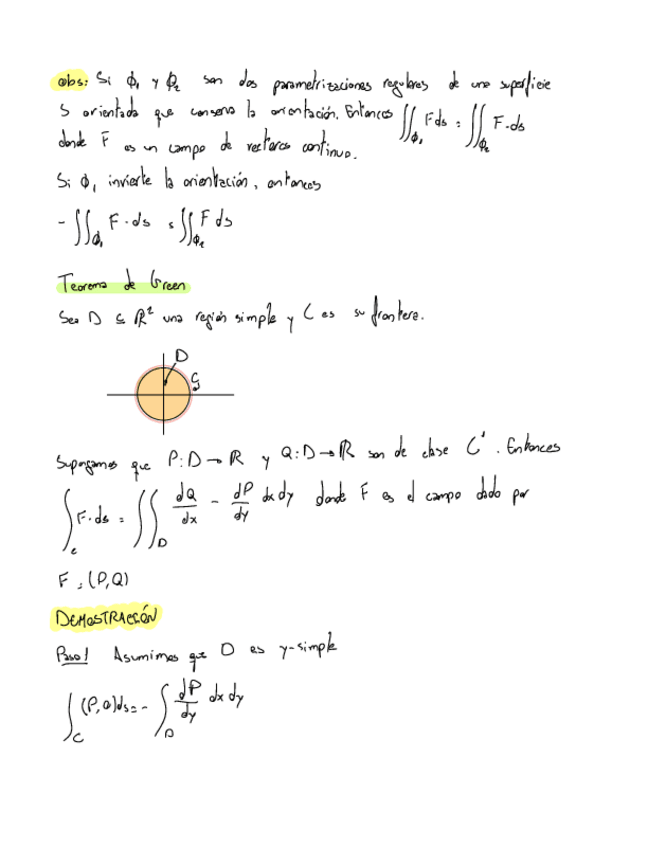 obs: Si ϕ₁ y ϕ₂ son dos parametrizaciones regulares de una superficie
S orientada que conserva la orientación. Entonces ∬_ϕ₁ F ds = ∬_ϕ₂ F · ds
donde F es un campo de vectores continuo.
Si ϕ₁ invierte la orientación, entonces
- ∬_ϕ₁ F · ds = ∬_ϕ₂ F ds
Teorema de Green
Sea D ⊆ ℝ² una región simple y C es su frontera.
D
C
Supongamos que P: D → ℝ y Q: D → ℝ son de clase C¹. Entonces
∫_C F · ds = ∬_D dQ/dx - dP/dy dx dy donde F es el campo dado por
F = (P, Q)
DEMOSTRACIÓN
Paso 1 Asumimos que D es y-simple
∫_C (P, Q) ds = - ∫_D dP/dy dx dy